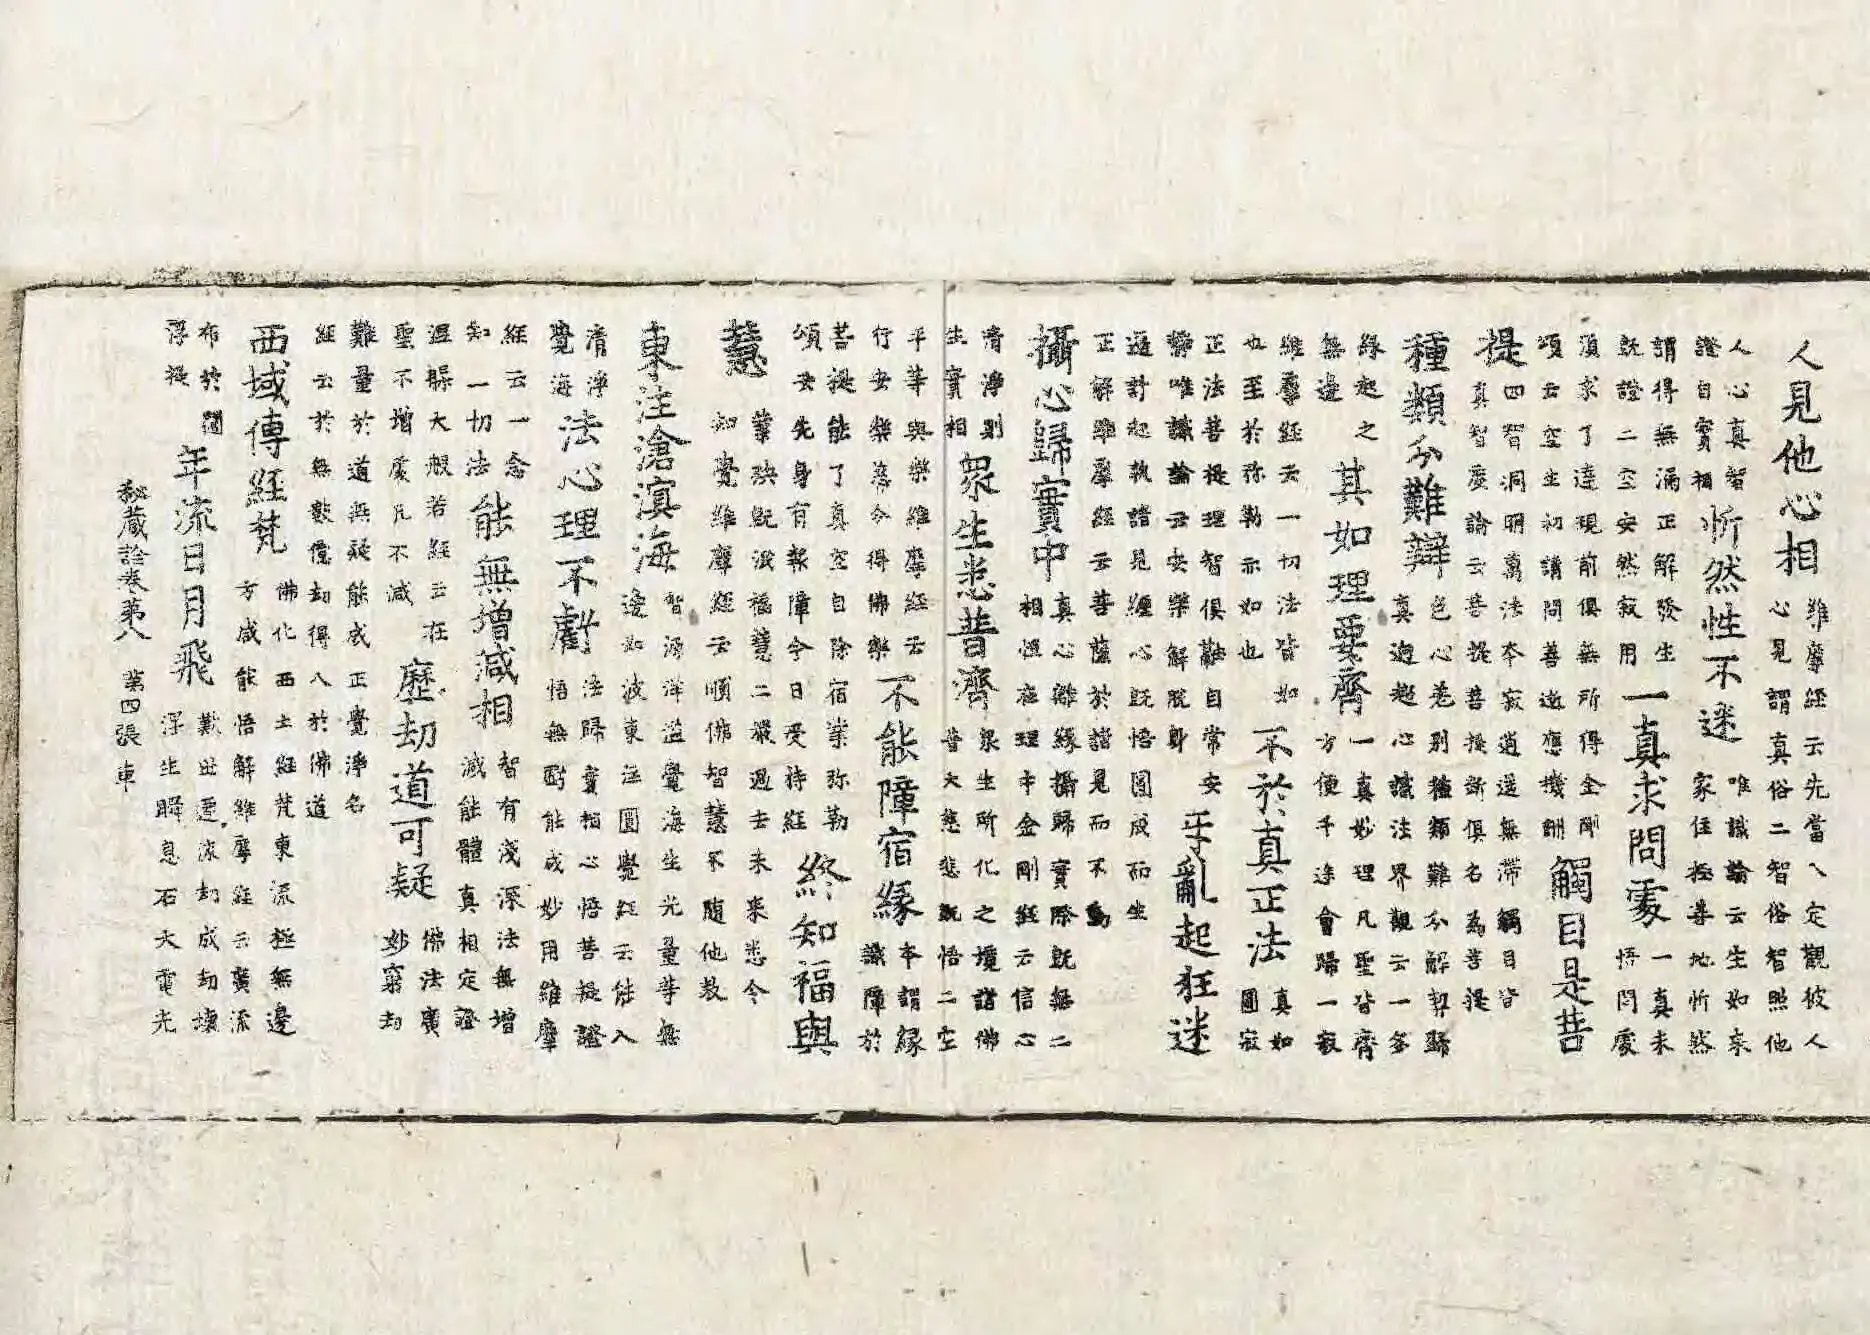 人見他心相 維摩經云先當入定觀彼人
心見謂真俗二智俗智照他
人心真智
證自實相 忻然性不迷 唯識論云生如來
家住極喜地忻然
謂得無漏正解發生
既證二空安然寂用 一真求問處 一真未
悟問處
須求了達現前俱無所得金剛
頌云空生初請問善逝應機酬 觸目是菩
提 四智洞明萬法本寂逍遥無滯觸目皆
真智度論云菩提菩提斷俱名為菩提
種類分難辯 色心差別種類難分解契歸
真迥超心識法界觀云一多
緣起之
無邊 其如理要齊 一真妙理凡聖皆齊
方便千途會歸一寂
維摩經云一切法皆如
也至於弥勒亦如也 不於真正法 真如
圓寂
正法菩提理智俱離自常安
辯唯識論云安樂解脫身 㸦亂起狂迷
遍計起執諸見纏心既悟圓成而生
正解維摩經云菩薩於諸見而不動
攝心歸實中 真心離緣攝歸實際既無二
相恒在理中金剛經云信心
清淨則
生實相 眾生悉普濟 眾生所化之境諸佛
普大慈悲既悟二空
平等與樂維摩經云
行安樂慈令得佛樂 不能障宿緣 本謂緣
識障於
菩提能了真空自除宿業弥勒
頌云先身有報障今日受持經 終知福與
慧 業殃既滅福慧二嚴過去未來悉令
知覺維摩經云順佛智慧不隨他教
東注滄溟海 智源洋溢覺海生光量等無
邊如波東注圓覺經云能入
清淨
覺海 法心理不虧 法歸實相心悟菩提證
悟無虧能成妙用維摩
經云一念
知一切法 能無增減相 智有淺深法無增
減能體真相定證
温操大般若經云在
聖不增處凡不減 歷劫道可疑 佛法廣
妙窮劫
難量於道無疑能成正覺淨名
經云於無數億劫得入於佛道
西域傳經梵 佛化西土經梵東流極無邊
方咸能悟解維摩經云廣流
布於閻
浮提 年流日月飛 歎世遷流劫成劫壞
浮生瞬息石火電光
秘藏詮卷第八 第四張 車